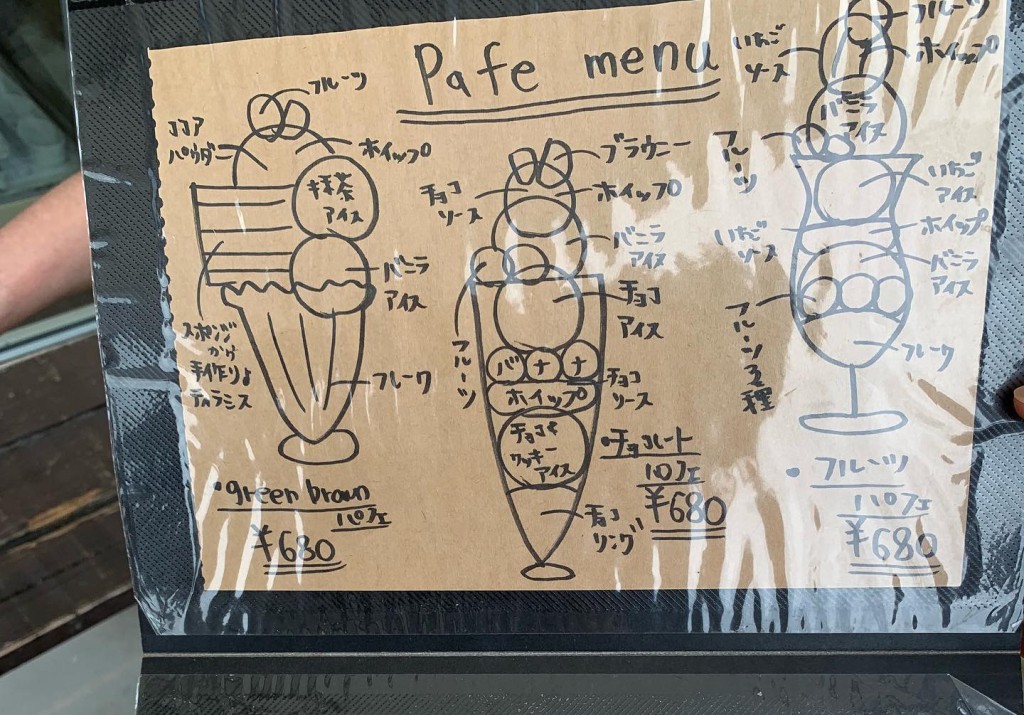 Pafe menu
フルーツ
ココア
パウダー
ホイップ
抹茶
アイス
バニラ
アイス
スポンジ
かけ
手作り
ティラミス
フレーク
・green brown
パフェ
¥680
ブラウニー
チョコ
ソース
ホイップ
バニラ
アイス
チョコ
アイス
フルーツ
バナナ
チョコ
ソース
ホイップ
チョコ
クッキー
アイス
チョコ
リング
・チョコレート
パフェ
¥680
フルーツ
いちご
ソース
ホイップ
バニラ
アイス
フルーツ
いちご
アイス
ホイップ
いちご
ソース
バニラ
アイス
フルーツ3種
フレーク
・フルーツ
パフェ
¥680